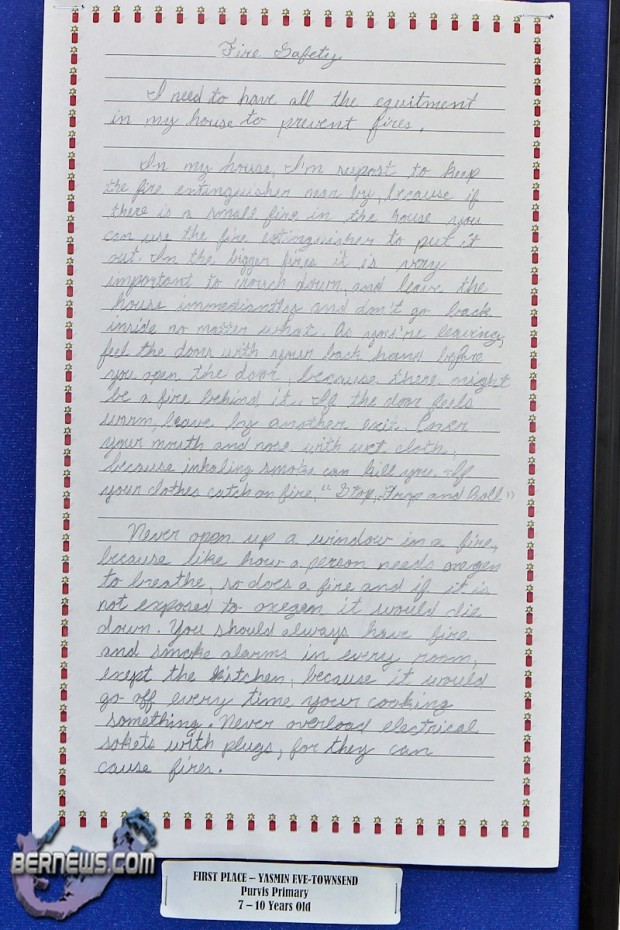 Fire Safety
I need to have all the equitment
in my house to prevent fires.
In my house, I'm supost to keep
the fire extinguisher near by, because if
there is a small fire in the house you
can use the fire extinguisher to put it
out. In the bigger fires it is very
important to crouch down and leave the
house immediantly and don't go back
inside no matter what. As you're leaving,
feel the door with your back hand before
you open the door, because there might
be a fire behind it. If the door feels
warm, leave by another exit. Cover
your mouth and nose with wet cloth,
because inhaling smoke can kill you. If
your clothes catch on fire, "Stop, Drop and Roll."
Never open up a window in a fire,
because like how a person needs oxegen
to breathe, so does a fire and if it is
not exposed to oxegen it would die
down. You should always have fire
and smoke alarms in every room,
exept the kitchen, because it would
go off every time your cooking
something. Never overload electrical
sokets with plugs, for they can
cause fires.
BERNEWS.COM
FIRST PLACE – YASMIN EVE-TOWNSEND
Purvis Primary
7 – 10 Years Old